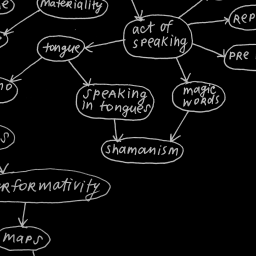 materiality
act of
speaking
REP
tongue
PRE
no
speaking
in tongues
magic
words
S
shamanism
RFORMATIVITY
MAPS